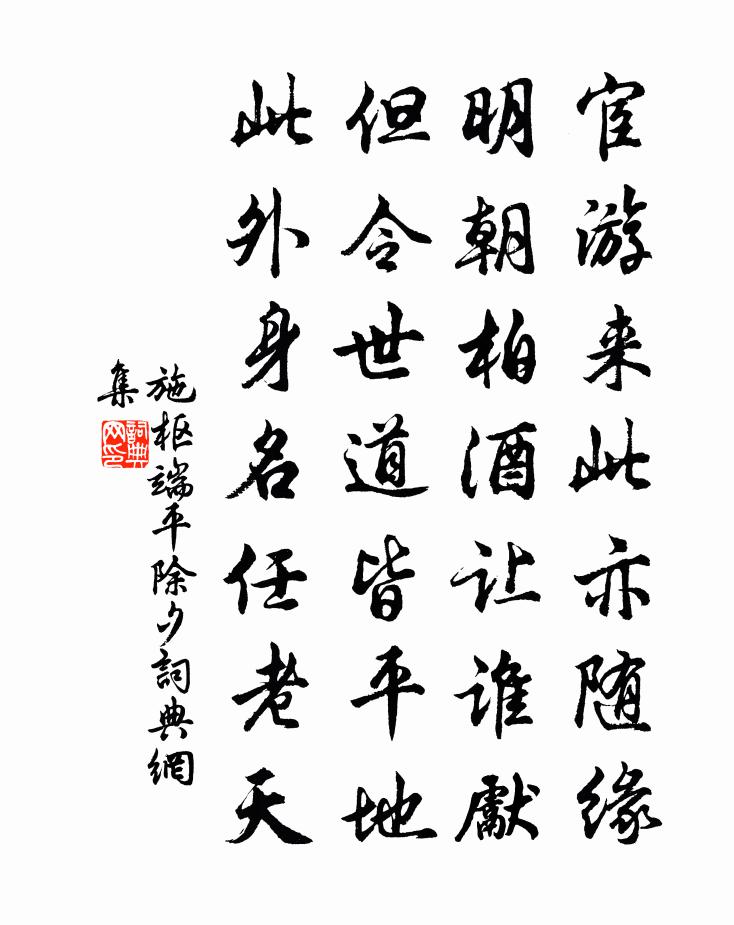 宦游来此亦随缘
明朝柏酒让谁獻
但令世道皆平地
此外身名任老天
施枢端平除夕詞典網
集
詞典
网印